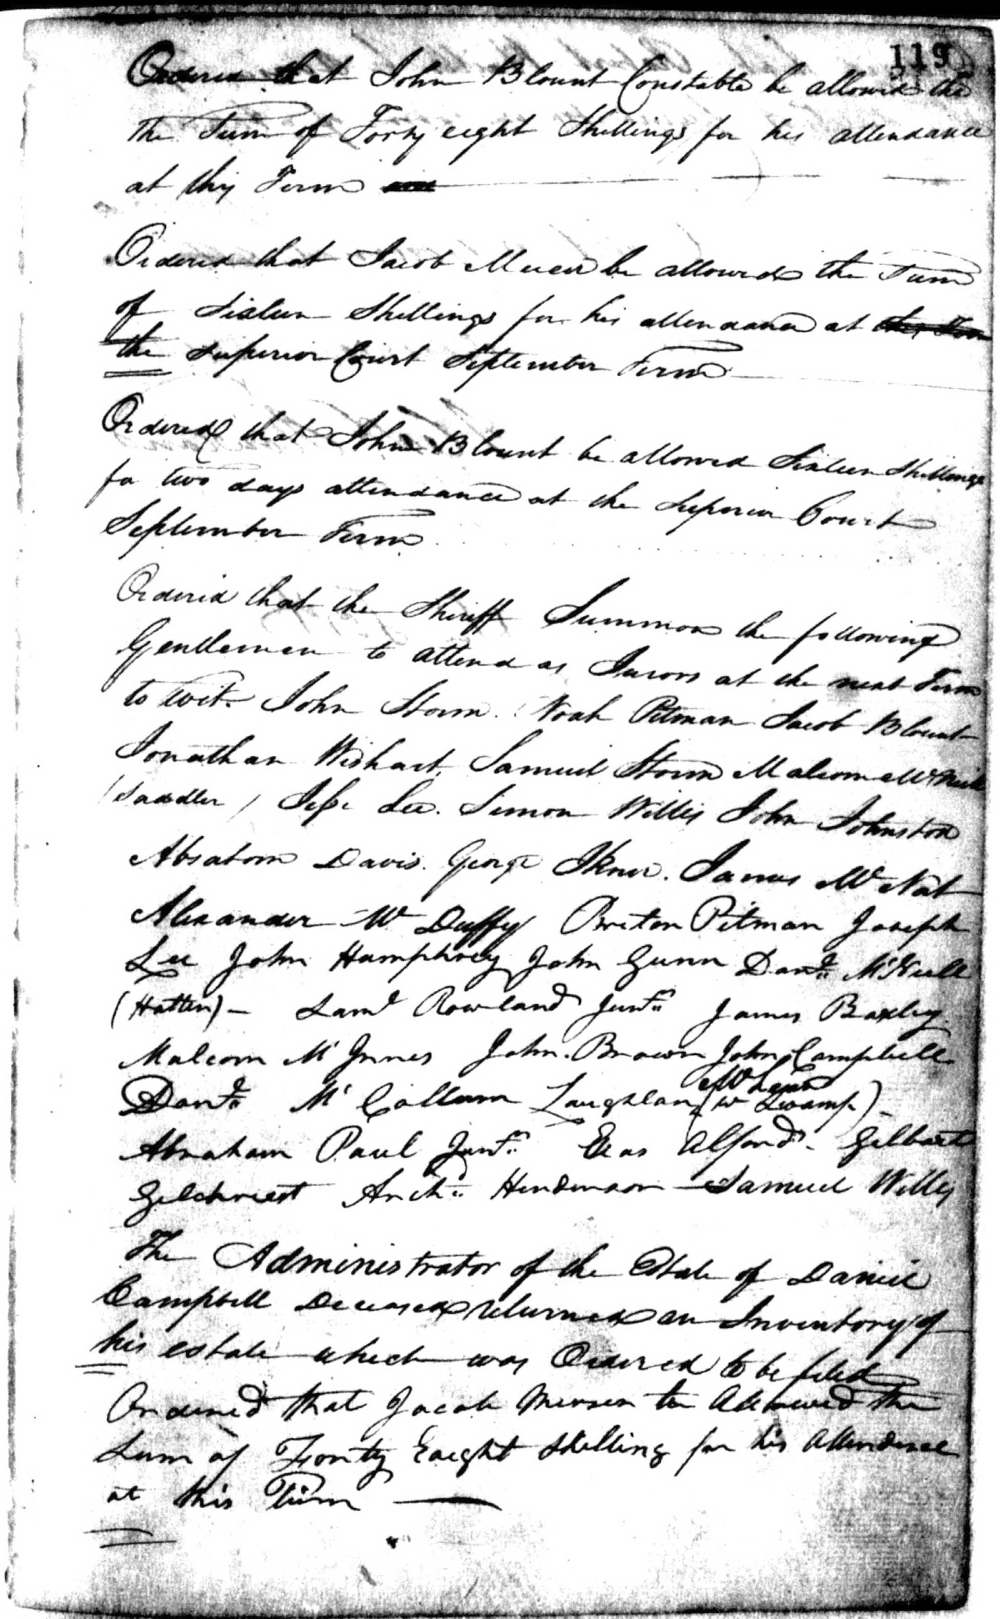 119
Ordered that John Blount Constable be allowed the
the Sum of Forty eight Shillings for his attendance
at this Term
Ordered that Jacob Mercer be allowed the Sum
of Sixteen Shillings for his attendance at
the Superior Court September Term
Ordered that John Blount be allowed Sixteen Shillings
for two days attendance at the Superior Court
September Term
Ordered that the Sheriff Summon the following
Gentlemen to attend as Jurors at the next Term
to wit. John Storm. Noah Pitman Jacob Blount
Jonathan Wishart, Samuel Storm Malcom McNeill
(Saddler) Jesse Lee. Simon Willis John Johnston
Absalom Davis. George Ikner. James McNat
Alexander Mc Duffy Briton Pitman Joseph
Lee John Humphrey John Gunn Danl. McNeill
(Hatter) - Saml Rowland Junr. James Baxley
Malcom Mc Innes John Brown John Campbell
Danl. Mc Collum Laughlan McLean (W Swamp)
Abraham Paul Junr. Elias Alford. Gilbert
Gilchriest Archd. Henderson Samuel Willis
The Administrator of the Estate of Daniel
Campbell Deceased returned an Inventory of
his estate which was Ordered to be filed
Ordered that Jacob Mercer be Allowed the
Sum of Fourty Eaight Shilling for his Attendance
at this Tirm